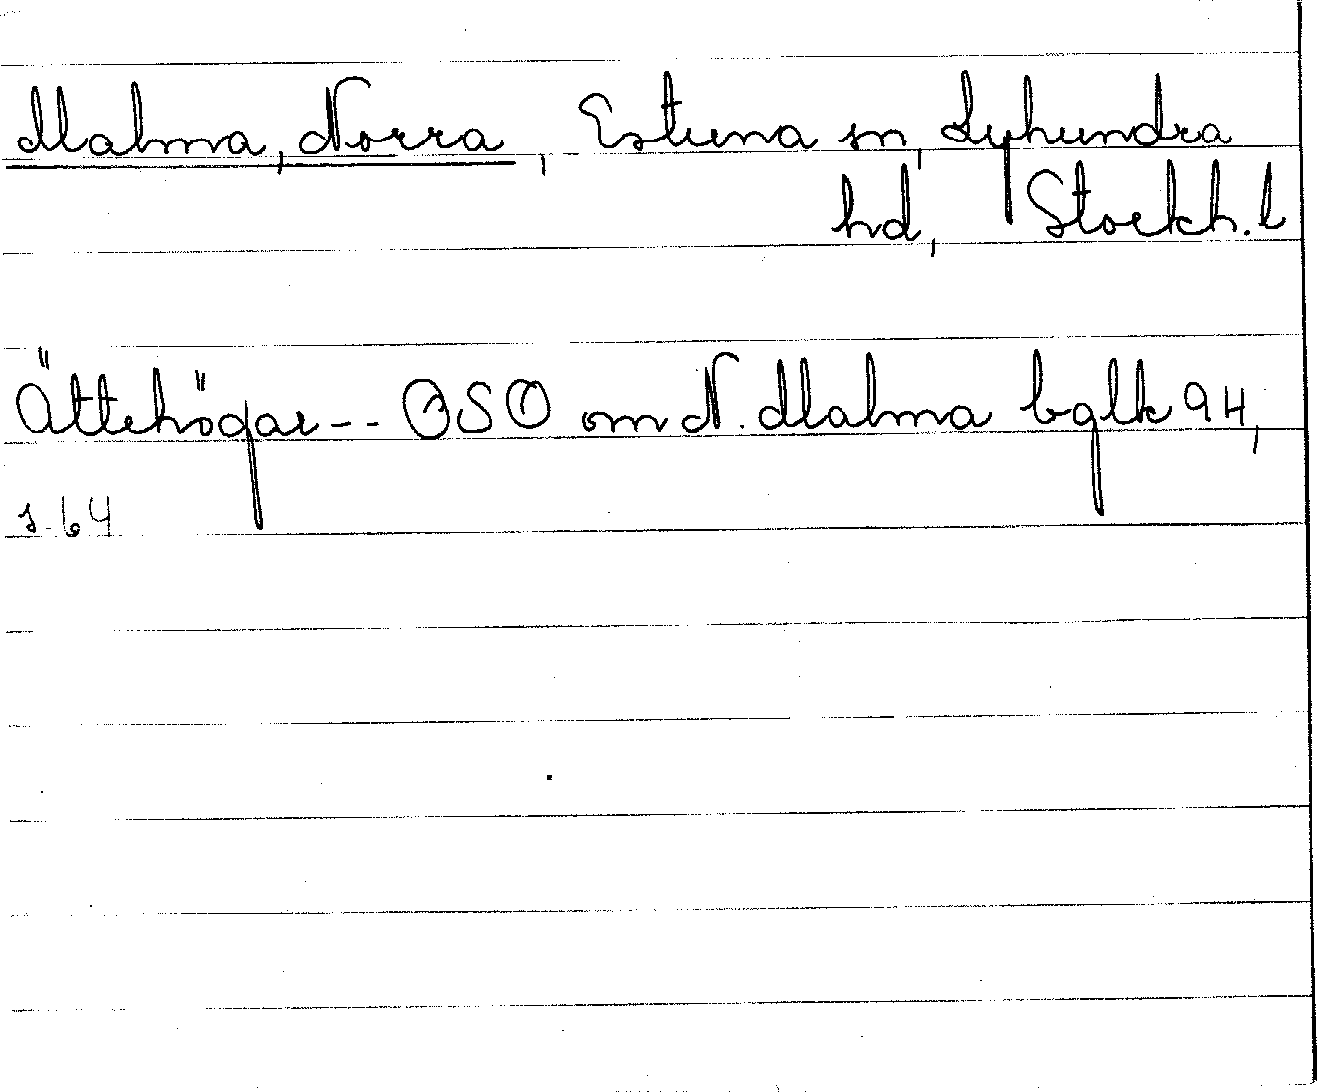 Malma, Norra, Estuna sn, Lyhundra
hd, Stockh. l
Ättehögar-- OSO om N. Malma bglk 94,
s. 64